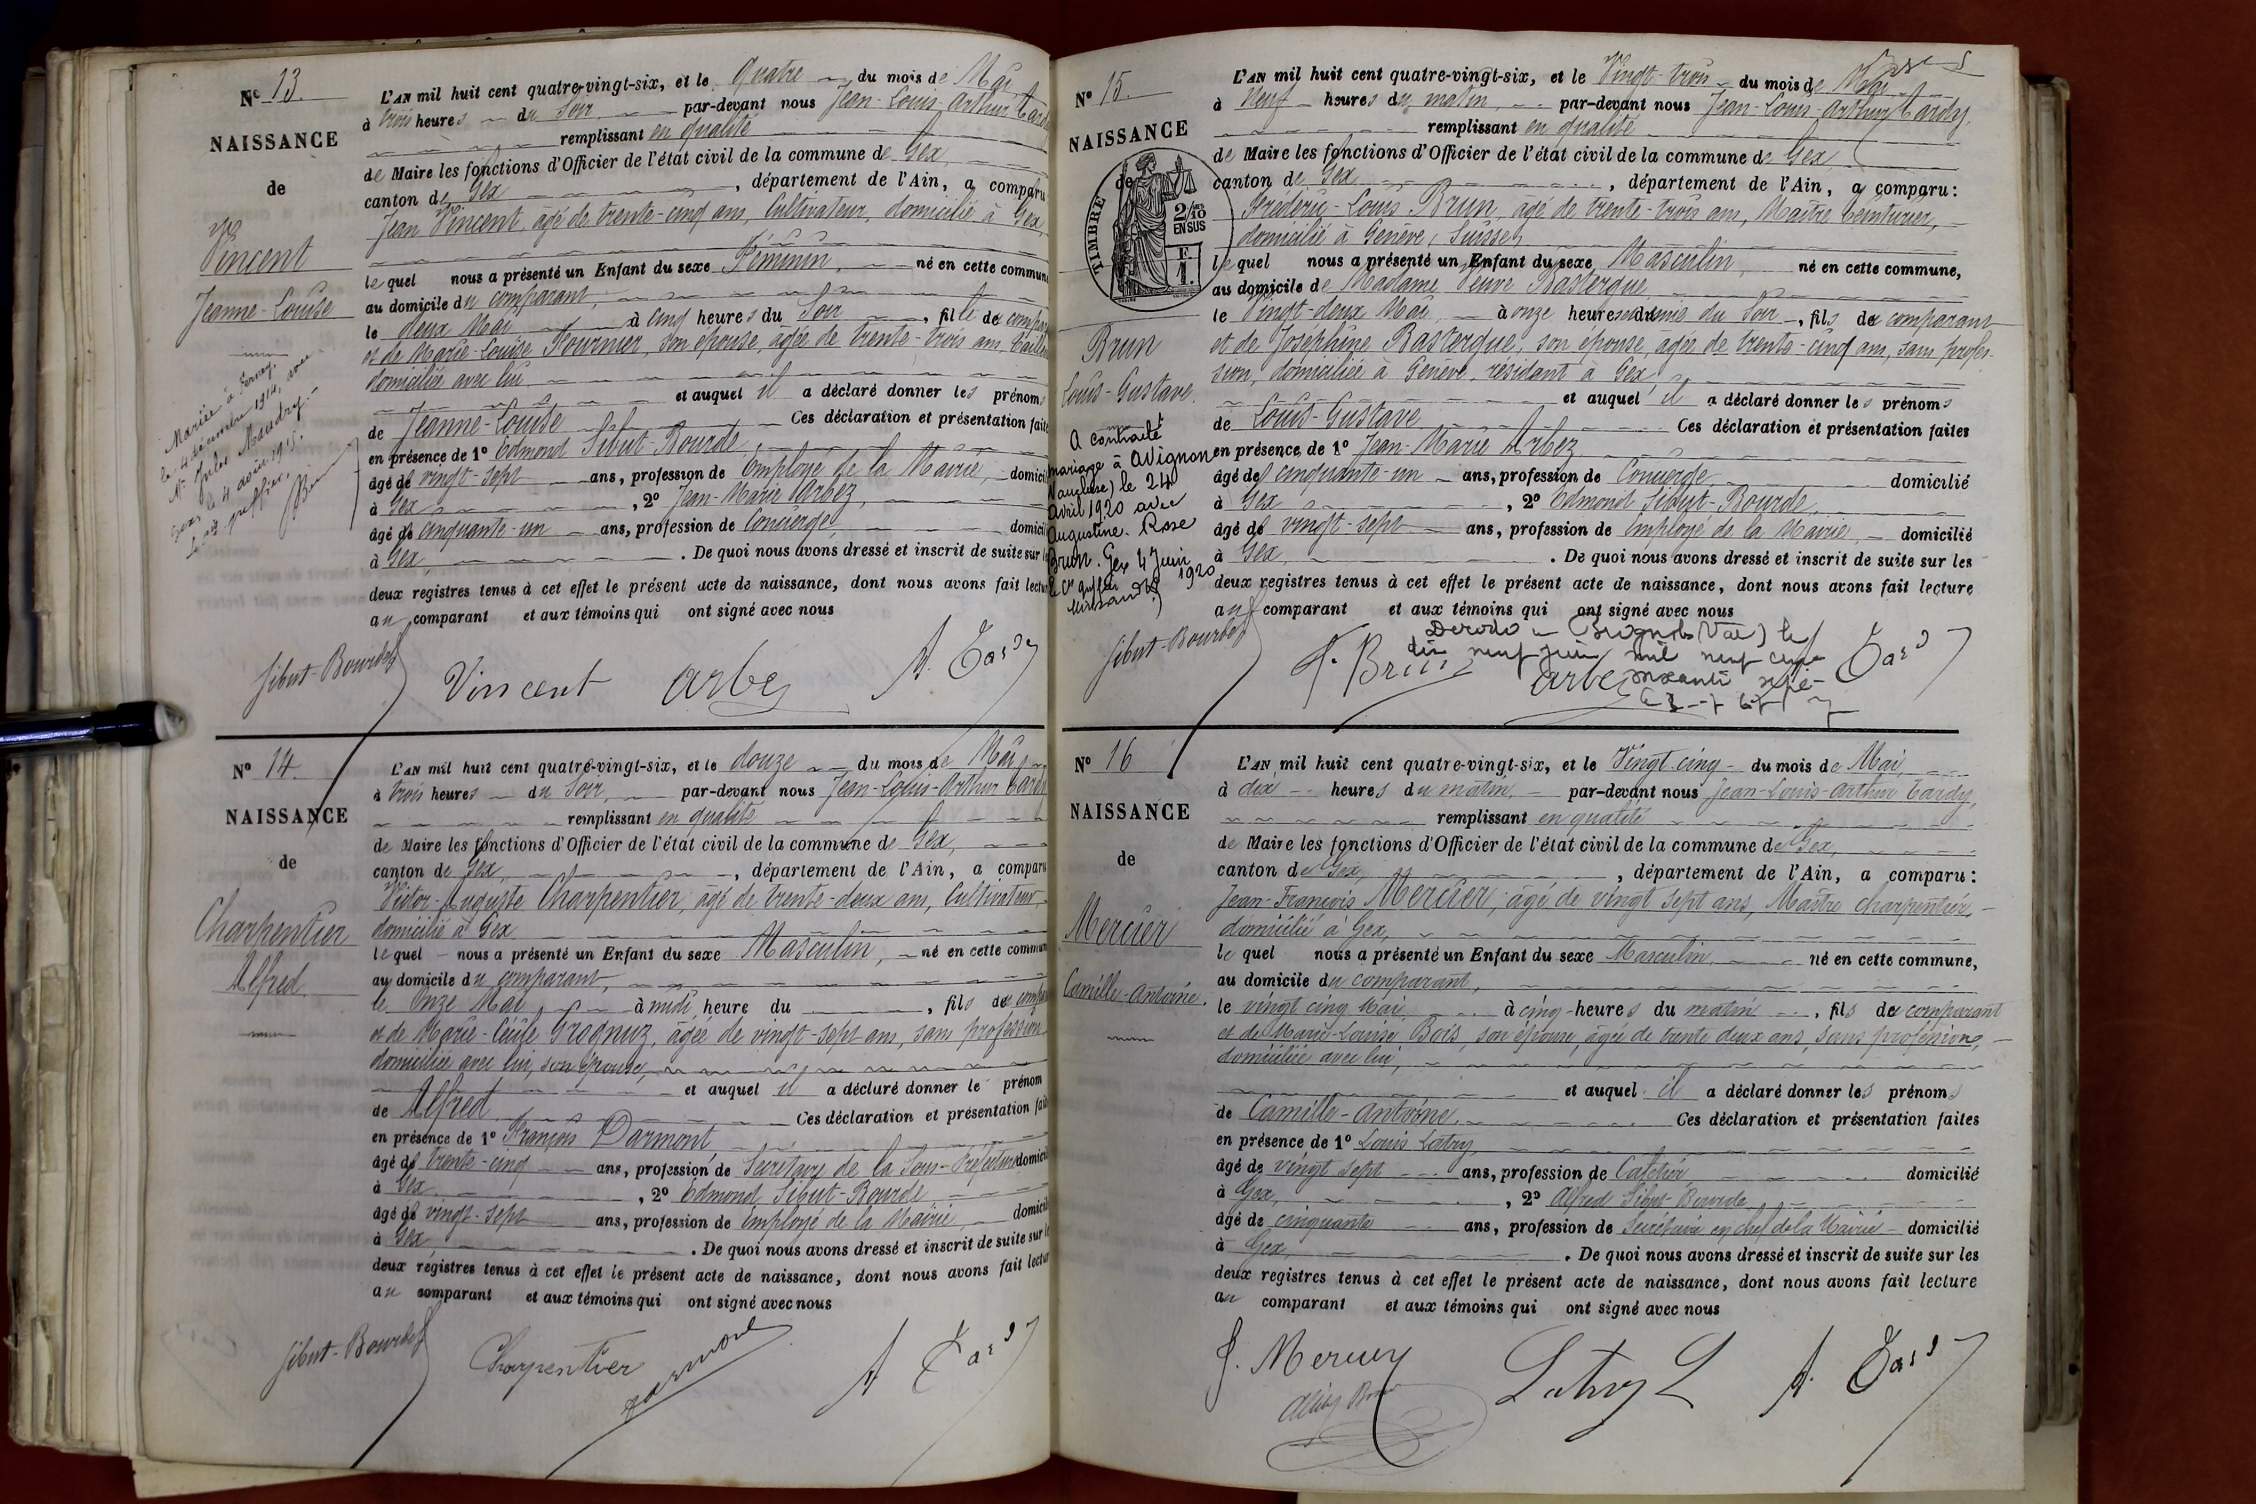 N° 13.
NAISSANCE
de
Vincent
Jeanne-Louise
Mariée à Ferney
le 4 décembre 1914, avec
Mr. Jules Maudry.
Gex, le 4 août 1915.
Le greffier,
L'AN mil huit cent quatre-vingt-six, et le Quatre du mois de Mai,
à trois heures du Soir, par-devant nous Jean-Louis-Arthur Tardy
remplissant en qualité
de Maire les fonctions d'Officier de l'état civil de la commune de Gex,
canton de Gex, département de l'Ain, a comparu
Jean Vincent, âgé de trente-cinq ans, Cultivateur, domicilié à Gex,
lequel nous a présenté un Enfant du sexe Féminin, né en cette commune
au domicile du comparant,
le deux Mai à cinq heures du Soir, fille de compar
et de Marie-Louise Fournier, son épouse, âgée de trente-trois ans,
domiciliée avec lui
et auquel il a déclaré donner les prénoms
de Jeanne-Louise Ces déclaration et présentation faites
en présence de 1° Edmond Sibut-Bourde
âgé de vingt-sept ans, profession de Employé de la Mairie, domici
à Gex, 2° Jean-Marie Arbez,
âgé de cinquante-un ans, profession de Concierge, domici
à Gex, . De quoi nous avons dressé et inscrit de suite sur
deux registres tenus à cet effet le présent acte de naissance, dont nous avons fait lectur
au comparant et aux témoins qui ont signé avec nous
Sibut-Bourde Vincent Arbez A. Tardy
N° 14.
NAISSANCE
de
Charpentier
Alfred
L'AN mil huit cent quatre-vingt-six, et le douze du mois de Mai,
à trois heures du Soir, par-devant nous Jean-Louis-Arthur Tardy
remplissant en qualité
de Maire les fonctions d'Officier de l'état civil de la commune de Gex,
canton de Gex, département de l'Ain, a comparu
Victor-Auguste Charpentier, âgé de trente-deux ans, Cultivateur,
domicilié à Gex
lequel nous a présenté un Enfant du sexe Masculin, né en cette commun
au domicile du comparant,
le Onze Mai à midi, heure du , fils de compar
et de Marie-Cécile Grognuz, âgée de vingt-sept ans, sans profession
domiciliée avec lui, son épouse,
et auquel il a déclaré donner le prénom
de Alfred Ces déclaration et présentation fait
en présence de 1° François Darmont
âgé de trente-cinq ans, profession de Secrétaire de la Sous-Préfecture domici
à Gex, 2° Edmond Sibut-Bourde
âgé de vingt-sept ans, profession de Employé de la Mairie, domici
à Gex, . De quoi nous avons dressé et inscrit de suite sur
deux registres tenus à cet effet le présent acte de naissance, dont nous avons fait lectur
au comparant et aux témoins qui ont signé avec nous
Sibut-Bourde Charpentier Darmont A Tardy
N° 15.
NAISSANCE
de
TIMBRE
2/10
EN SUS
F.
1.
Brun
Louis-Gustave.
A contracté
mariage à Avignon
(Vaucluse) le 24
avril 1920 avec
Augustine-Rose
Brun. Gex 4 Juin
1920
L'AN mil huit cent quatre-vingt-six, et le Vingt-trois du mois de Mai
à Neuf heures du matin, par-devant nous Jean-Louis-Arthur Tardy,
remplissant en qualité
de Maire les fonctions d'Officier de l'état civil de la commune de Gex
canton de Gex, département de l'Ain, a comparu:
Frédéric-Louis Brun, âgé de trente-trois ans, Maître teinturier,
domicilié à Genève, (Suisse)
lequel nous a présenté un Enfant du sexe Masculin, né en cette commune,
au domicile de Madame Veuve Rastergue
le Vingt-deux Mai à onze heures demie du Soir, fils de comparant
et de Joséphine Rastergue, son épouse, âgée de trente-cinq ans, sans profes-
sion, domiciliée à Genève, résidant à Gex,
et auquel il a déclaré donner les prénoms
de Louis-Gustave Ces déclaration et présentation faites
en présence de 1° Jean-Marie Arbez
âgé de cinquante-un ans, profession de Concierge, domicilié
à Gex, 2° Edmond Sibut-Bourde,
âgé de vingt-sept ans, profession de Employé de la Mairie, domicilié
à Gex, . De quoi nous avons dressé et inscrit de suite sur les
deux registres tenus à cet effet le présent acte de naissance, dont nous avons fait lecture
au comparant et aux témoins qui ont signé avec nous
Décédé à Brignoles (Var) le
dix neuf juin mil neuf cent
soixante sept
Sibut-Bourde F. Brun Arbez Tardy
N° 16
NAISSANCE
de
Mercier
Camille-Antoine.
L'AN mil huit cent quatre-vingt-six, et le Vingt-cinq du mois de Mai,
à dix heures du matin, par-devant nous Jean-Louis-Arthur Tardy,
remplissant en qualité
de Maire les fonctions d'Officier de l'état civil de la commune de Gex,
canton de Gex, département de l'Ain, a comparu:
Jean-François Mercier, âgé de vingt sept ans, Maître charpentier,
domicilié à Gex,
lequel nous a présenté un Enfant du sexe Masculin, né en cette commune,
au domicile du comparant,
le vingt cinq Mai, à cinq heures du matin, fils de comparant
et de Marie-Louise Bois, son épouse, âgée de trente deux ans, sans profession,
domiciliée avec lui,
et auquel il a déclaré donner les prénoms
de Camille-Antoine, Ces déclaration et présentation faites
en présence de 1° Louis Latry,
âgé de vingt sept ans, profession de Cafetier, domicilié
à Gex, 2° Alfred Sibut-Bourde
âgé de cinquante ans, profession de secrétaire en chef de la Mairie domicilié
à Gex, . De quoi nous avons dressé et inscrit de suite sur les
deux registres tenus à cet effet le présent acte de naissance, dont nous avons fait lecture
au comparant et aux témoins qui ont signé avec nous
J. Mercier Latry L A. Tardy